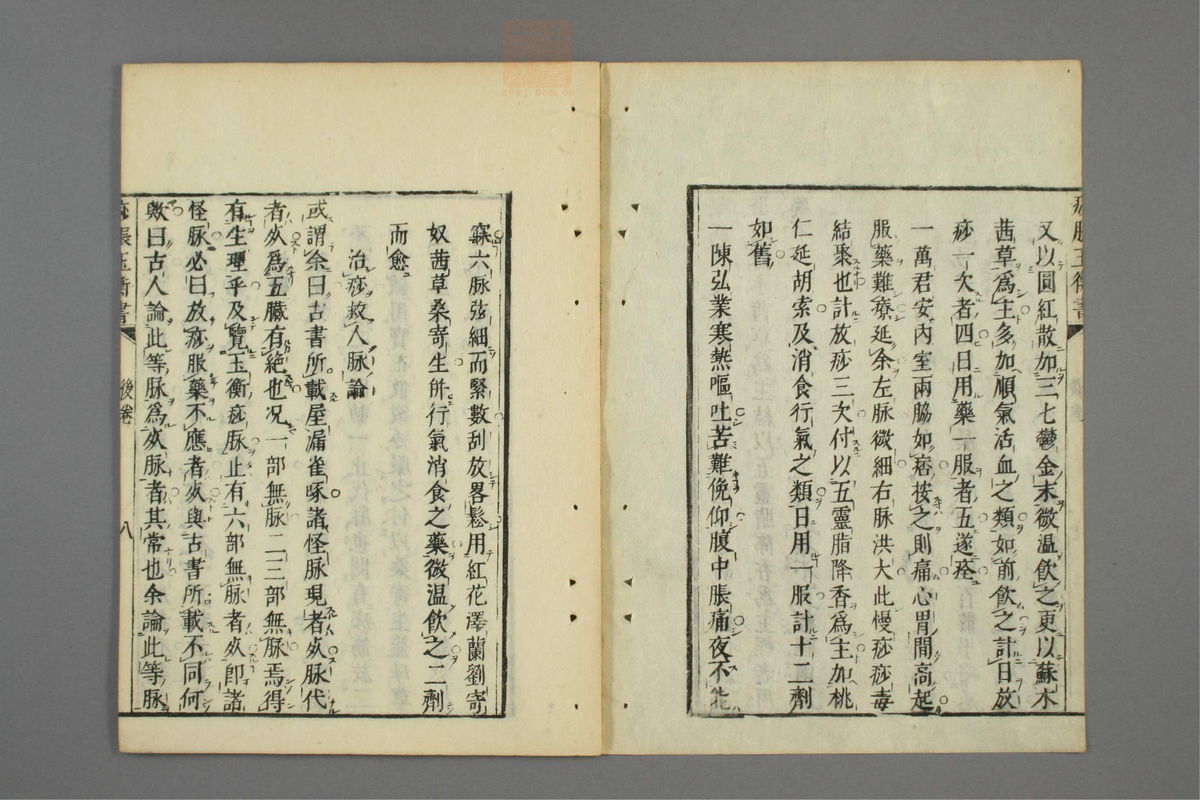 又以圓紅散加三七鬱金末微温飲之更以蘇木
茜草爲主多加順氣活血之類如前飲之計日放
痧一次者四日用藥一服者五遂痊
一萬君安内室兩脇如痞按之則痛心胃間高起
服藥難療延余左脉微細右脉洪大此慢痧痧毒
結聚也計放痧三次付以五靈脂降香爲主加桃
仁延胡索及消食行氣之類日用一服計十二劑
如舊
一陳弘業寒熱嘔吐苦難俛仰腹中脹痛夜不能
寐六脉弦細而緊數刮放畧鬆用紅花澤蘭劉寄
奴茜草桑寄生併行氣消食之藥微温飲之二劑
而愈
治痧救人脉論
或謂余曰古書所載屋漏雀啄諸怪脉現者必脉代
者必爲五臟有絶也况一部無脉二三部無脉焉得
有生理乎及覽玉衡痧脉止有六部無脉者必即諸
怪脉必曰放痧服藥不應者必與古書所載不同何
歟曰古人論此等脉爲必脉者其常也余論此等脉
痧脹玉衡書
後卷
八